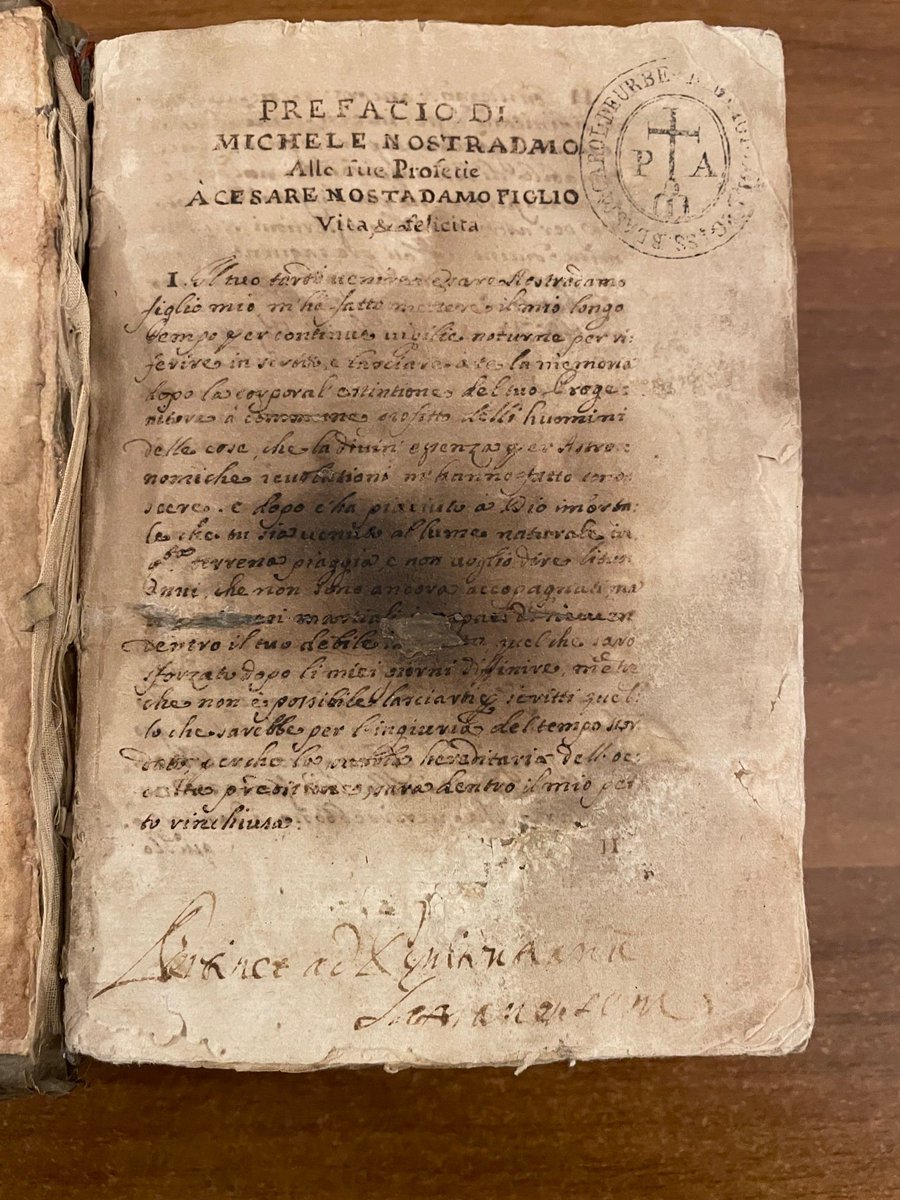 PREFATIO DI
MICHELE NOSTRADMO
Alle sue Profetie
À CESARE NOSTADAMO FIGLIO
Vita & felicita
I. Il tuo tardo uenire Cesare Nostradamo
figlio mio m'ha fatto mettere il mio longo
tempo per continue uigilie noturne per ri:
ferire in scritto, e lasciare a te la memoria
dopo la corporal estintione del tuo Proge:
nitore à commune profitto delli huomini
delle cose, che la diuin essenza per Astro:
nomiche reuolutioni m'hanno fatto cono:
scere. e dopo c'ha piaciuto à Dio imorta:
le che tu sia uenuto al lume naturale in
terrena piaggia, e non uoglio dire
Anni, che non sono ancora accopagnati, ma
martiali
dentro il tuo debile quel che saro
sforzato dopo li miei giorni diffinire,
che non è possibile lasciarti scritti quel:
lo che sarebbe per l'ingiuria del tempo
perche la parola hereditaria dell'oc:
culta predittione sara dentro il mio pet:
to rinchiusa.
II
ad
P A